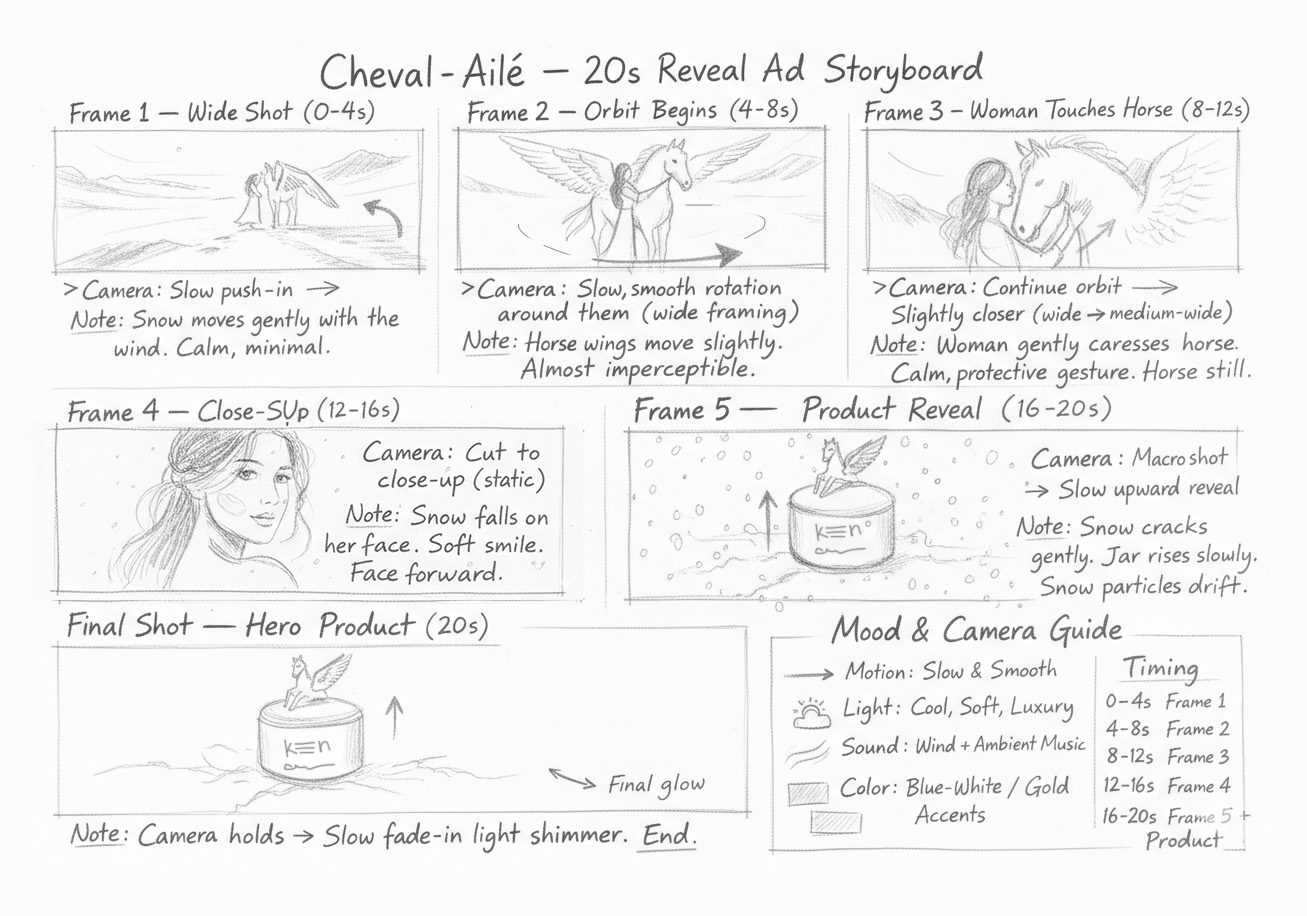 Cheval-Ailé — 20s Reveal Ad Storyboard
Frame 1 — Wide Shot (0-4s)
> Camera: Slow push-in →
Note: Snow moves gently with the
wind. Calm, minimal.
Frame 2 — Orbit Begins (4-8s)
> Camera: Slow, smooth rotation
around them (wide framing)
Note: Horse wings move slightly.
Almost imperceptible.
Frame 3 – Woman Touches Horse (8-12s)
> Camera: Continue orbit →
Slightly closer (wide → medium-wide)
Note: Woman gently caresses horse.
Calm, protective gesture. Horse still.
Frame 4 — Close-SUp (12-16s)
Camera: Cut to
close-up (static)
Note: Snow falls on
her face. Soft smile.
Face forward.
Frame 5 — Product Reveal (16-20s)
k≡n°
Camera: Macro shot
→ Slow upward reveal
Note: Snow cracks
gently. Jar rises slowly.
Snow particles drift.
Final Shot — Hero Product (20s)
k≡n
Final glow
Note: Camera holds → Slow fade-in light shimmer. End.
Mood & Camera Guide
Motion: Slow & Smooth
Light: Cool, Soft, Luxury
Sound: Wind + Ambient Music
Color: Blue-White / Gold
Accents
Timing
0-4s Frame 1
4-8s Frame 2
8-12s Frame 3
12-16s Frame 4
16-20s Frame 5 +
Product